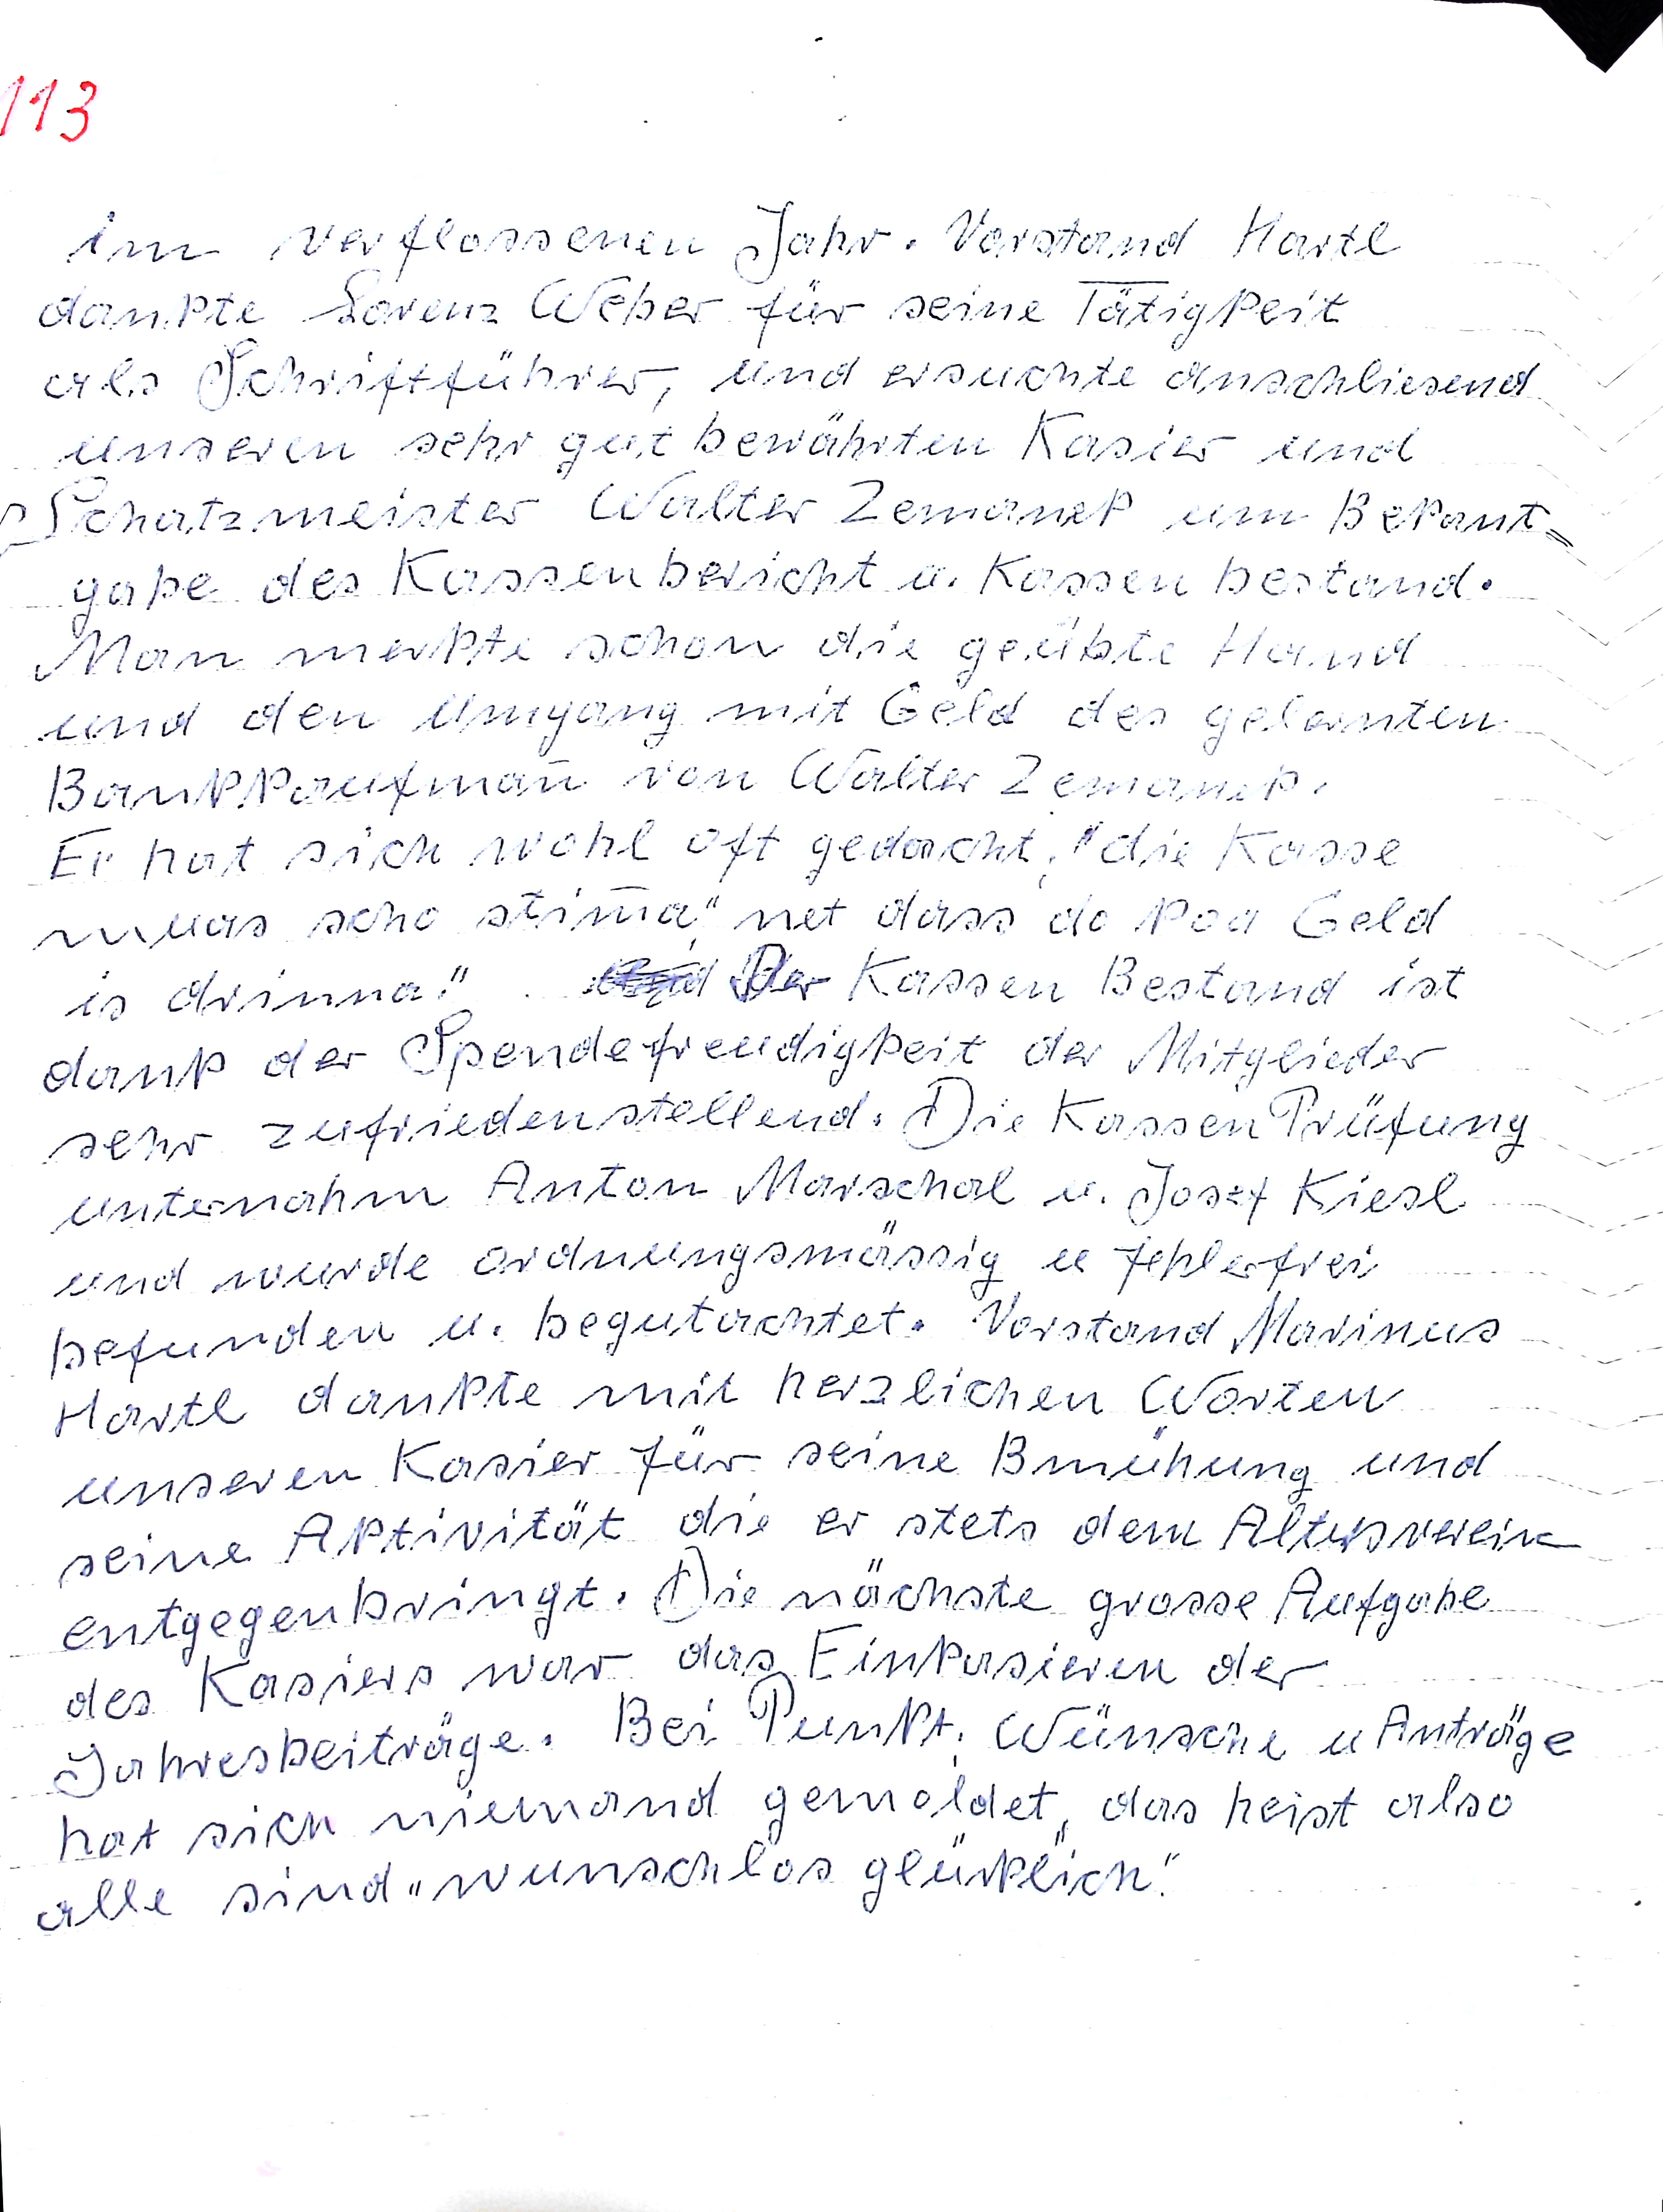 113
im verflossenen Jahr. Vorstand Hartl
dankte Lorenz Weber für seine Tätigkeit
als Schriftführer, und ersuchte anschliesend
unseren sehr gut bewährten Kasier und
Schatzmeister Walter Zemanek um Bekant=
gabe des Kassenbericht u. Kassenbestand.
Man merkte schon die geübte Hand
und den Umgang mit Geld des gelernten
Bankkaufmañ von Walter Zemanek.
Er hat sich wohl oft gedacht, "die Kasse
muas scho stim̄a" net dass do koa Geld
is drinna." Der Kassen Bestand ist
dank der Spendefreudigkeit der Mitglieder
sehr zufriedenstellend. Die Kassen Prüfung
unternahm Anton Marschal u. Josef Kiesl
und wurde ordnungsmässig u fehlerfrei
befunden u. begutachtet. Vorstand Marinus
Hartl dankte mit herzlichen Worten
unseren Kasier für seine Bmühung und
seine Aktivität die er stets dem Altersverein
entgegenbringt. Die nächste grosse Aufgabe
des Kasiers war das Einkasieren der
Jahresbeiträge. Bei Punkt, Wünsche u Anträge
hat sich niemand gemeldet, das heist also
alle sind "wunschlos glücklich."